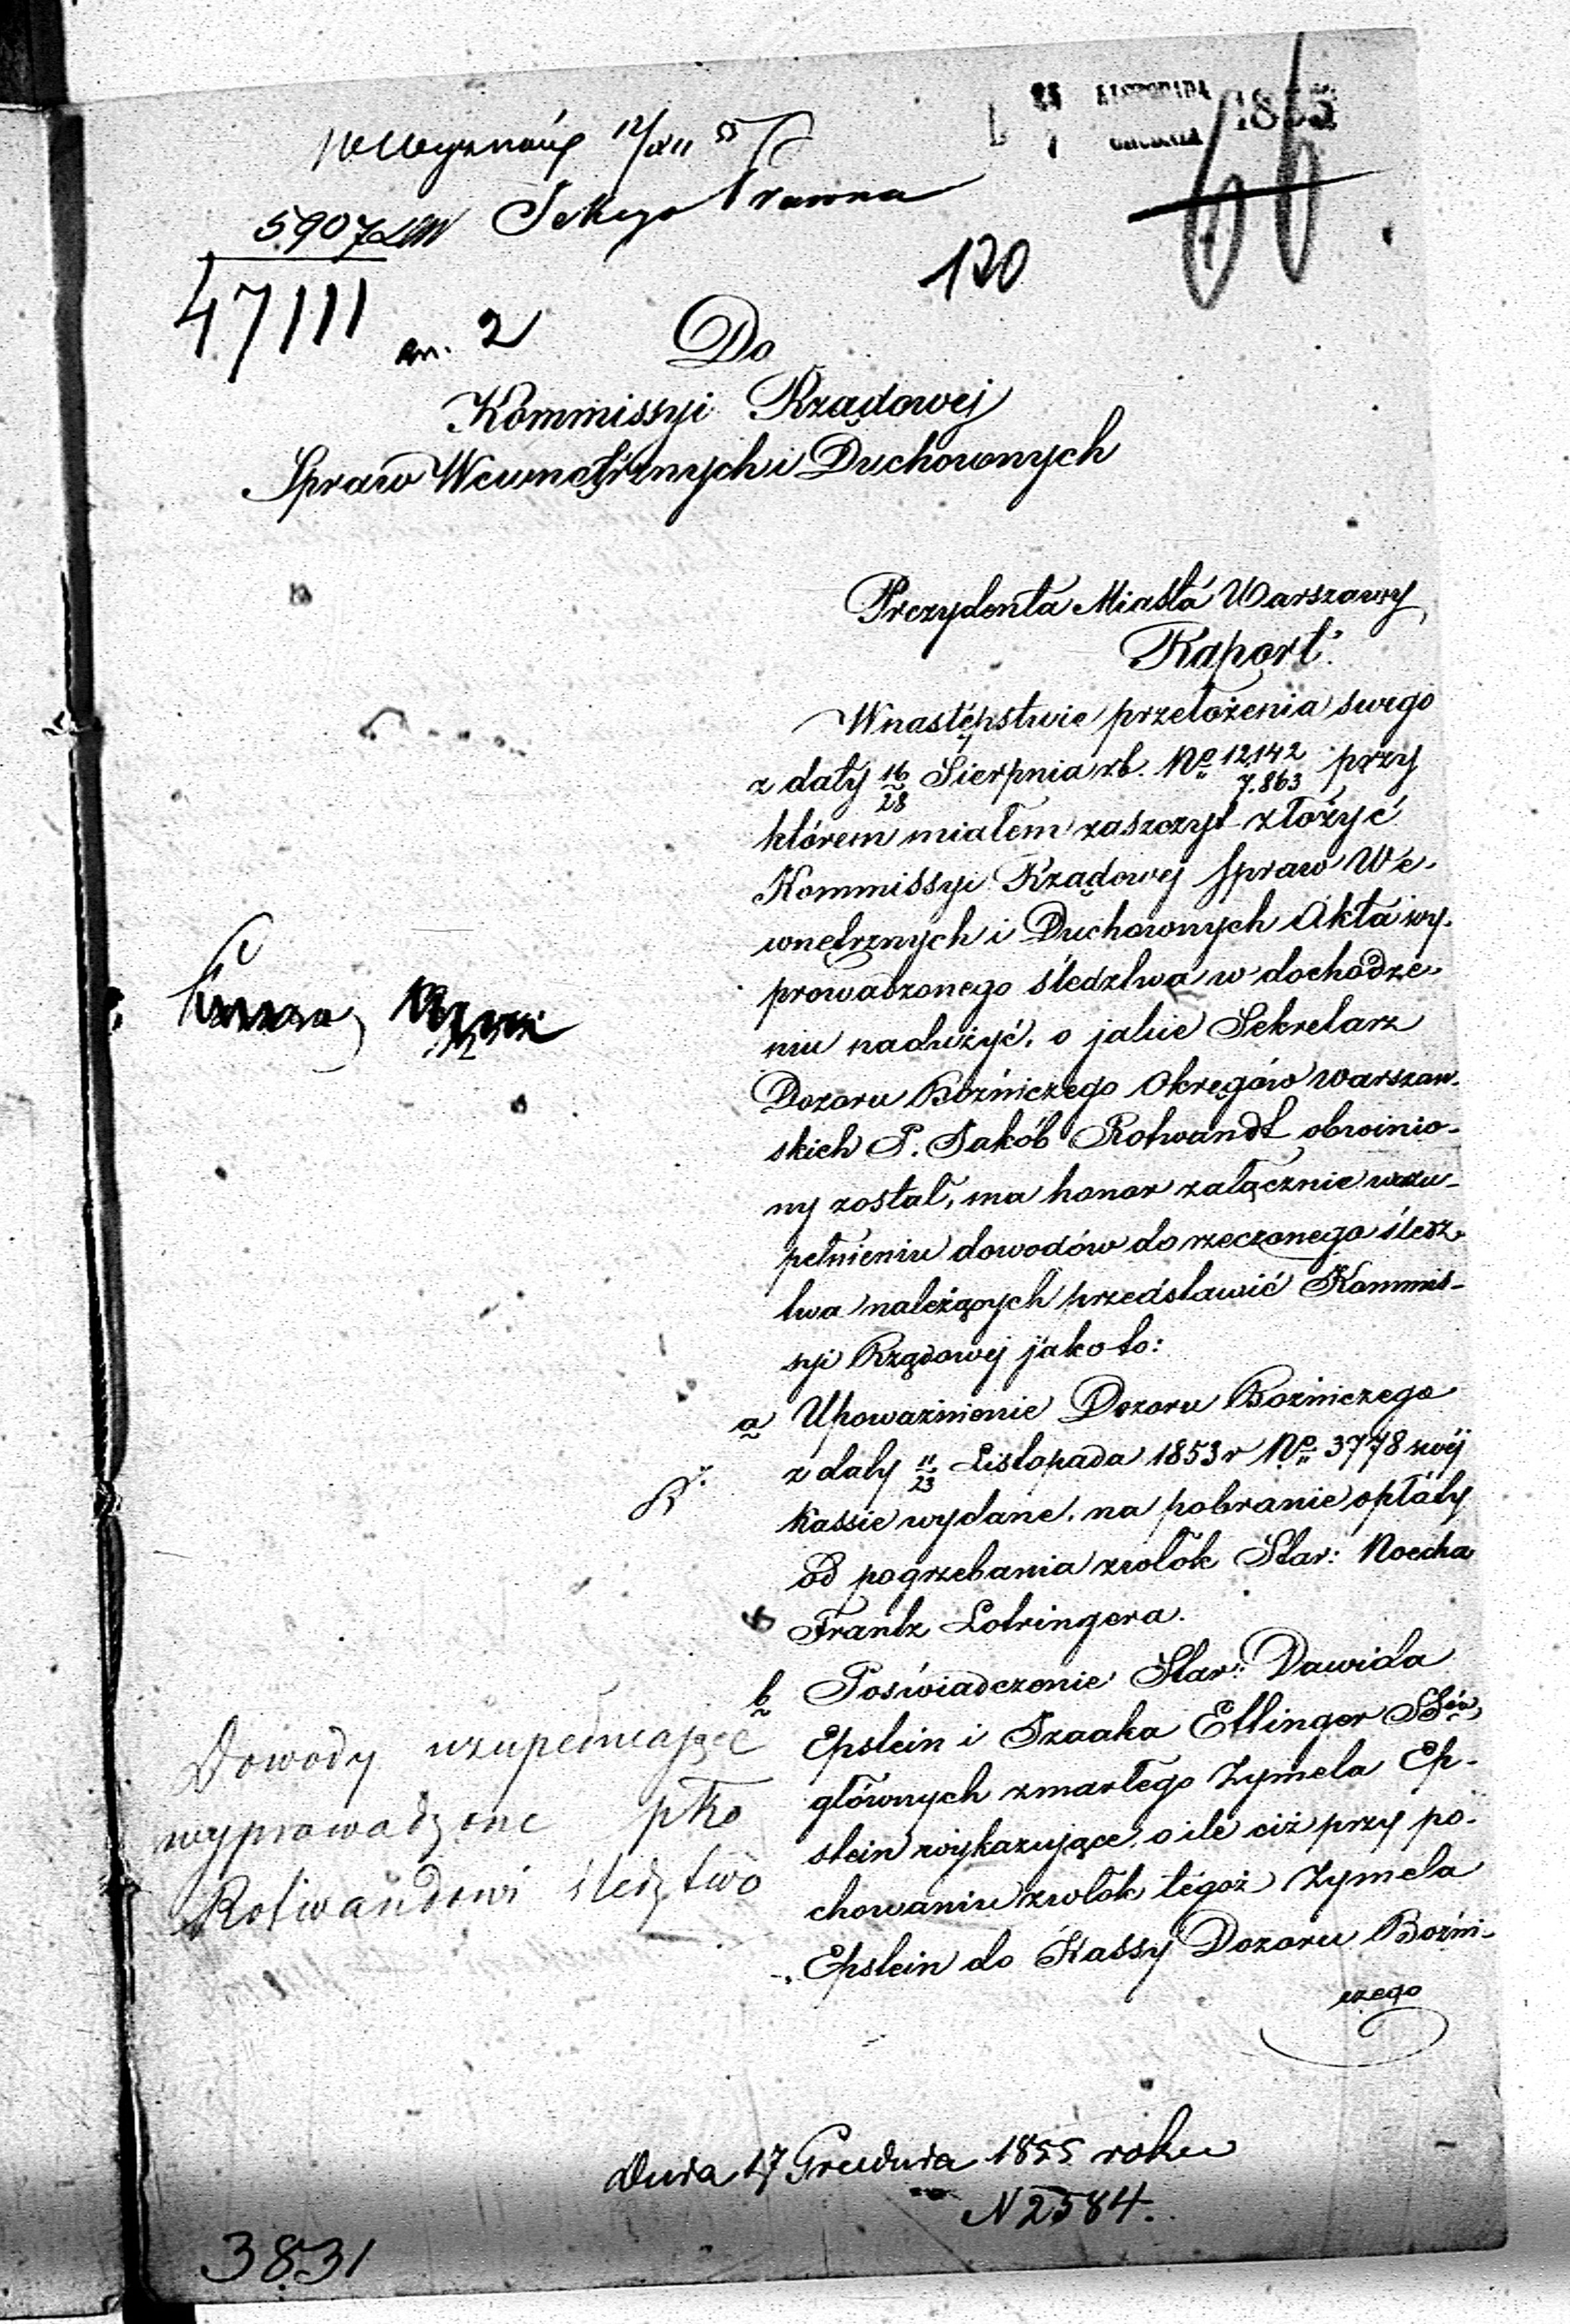 25 LISTOPADA
7 GRUDNIA 1855
66
12/XII 55
5907
47111
an. 2
120
Do
Kommissyi Rządowej
Spraw Wewnętrznych i Duchownych
Prezydenta Miasta Warszawy
Raport.
W następstwie przełożenia swego
z daty 16/28 Sierpnia rb. No 12142/7.863 przy
którem miałem zaszczyt złożyć
Kommissyi Rządowej Spraw We-
wnętrznych i Duchownych Akta wy-
prowadzonego śledztwa w dochodze-
niu nadużyć, o jakie Sekretarz
Dozoru Bożniczego Okręgów Warszaw-
skich P. Jakób Rotwandt obwinio-
ny został, ma honor załącznie w uzu-
pełnieniu dowodów do rzeczonego śledz-
twa należących przedstawić Kommis-
syi Rządowej jako to:
a Upoważnienie Dozoru Bożniczego
z daty 11/23 Listopada 1853 r No 3778 swéj
Kassie wydane, na pobranie opłaty
od pogrzebania zwłok Star: Noecha
Frantz Lotringera.
b Poświadczenie Star: Dawida
Epstein i Izaaka Ettinger
głównych zmarłego Zymela Ep-
stein wykazujące, o ile ciż przy po-
chowaniu zwłok tegoż Zymela
Epstein do Kassy Dozoru Bożni-
czego
Dowody uzupełniające
wyprowadzone pko
Rotwandowi śledztwo
Dnia 17 Grudnia 1855 roku
N 2584.
3831